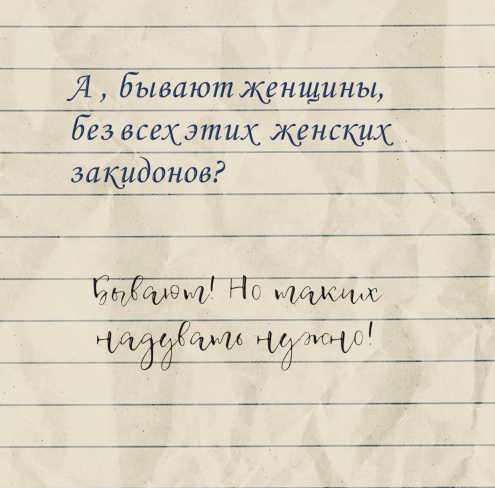 А , бывают женщины,
без всех этих женских
закидонов?
Бывают! Но таких
надувать нужно!